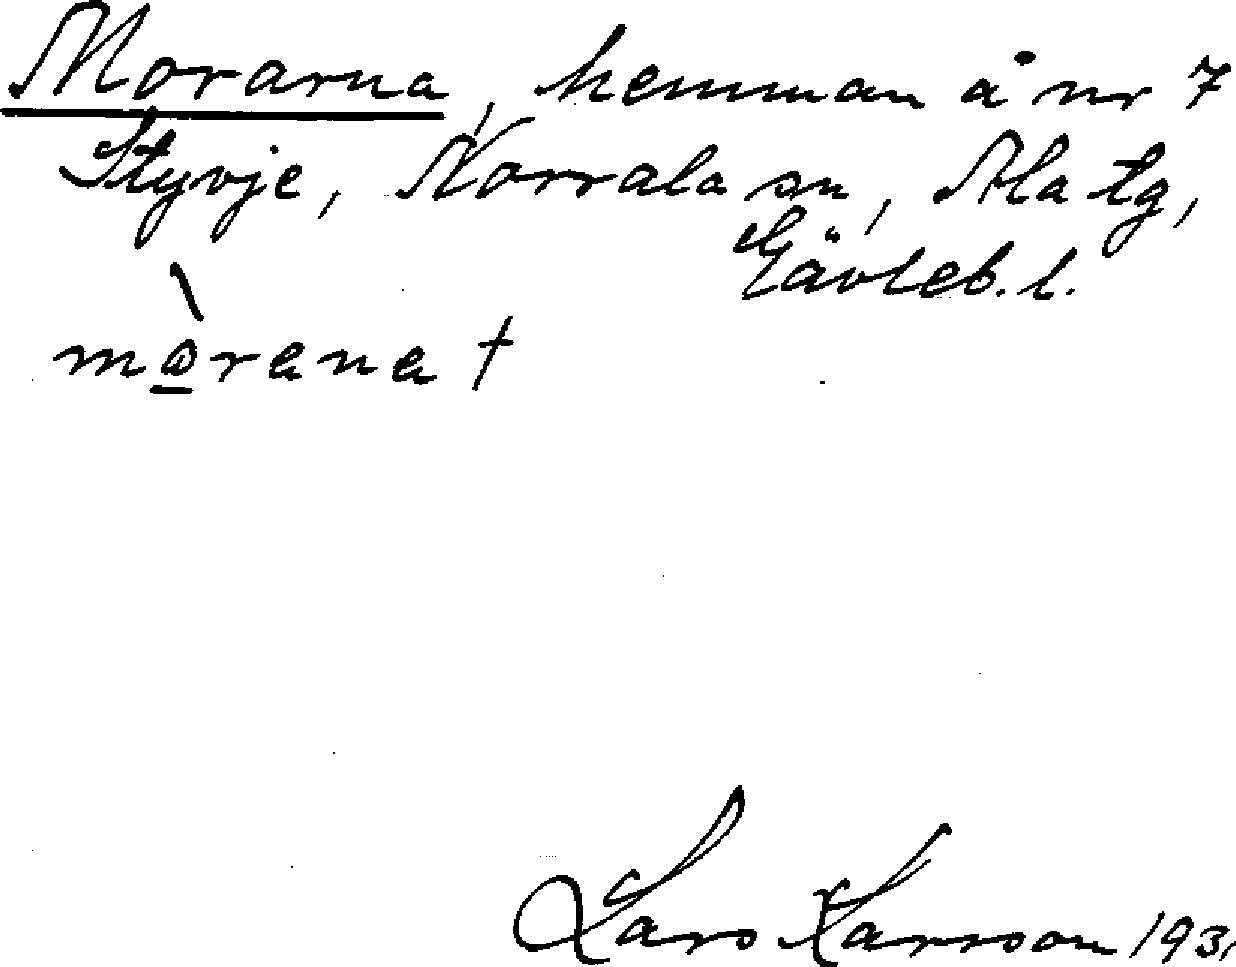 Morarna, hemman å nr 7
Styvje, Norrala sn, Ala tg,
Gävleb. l.
mὼ̲rana †
Lars Larsson 1931